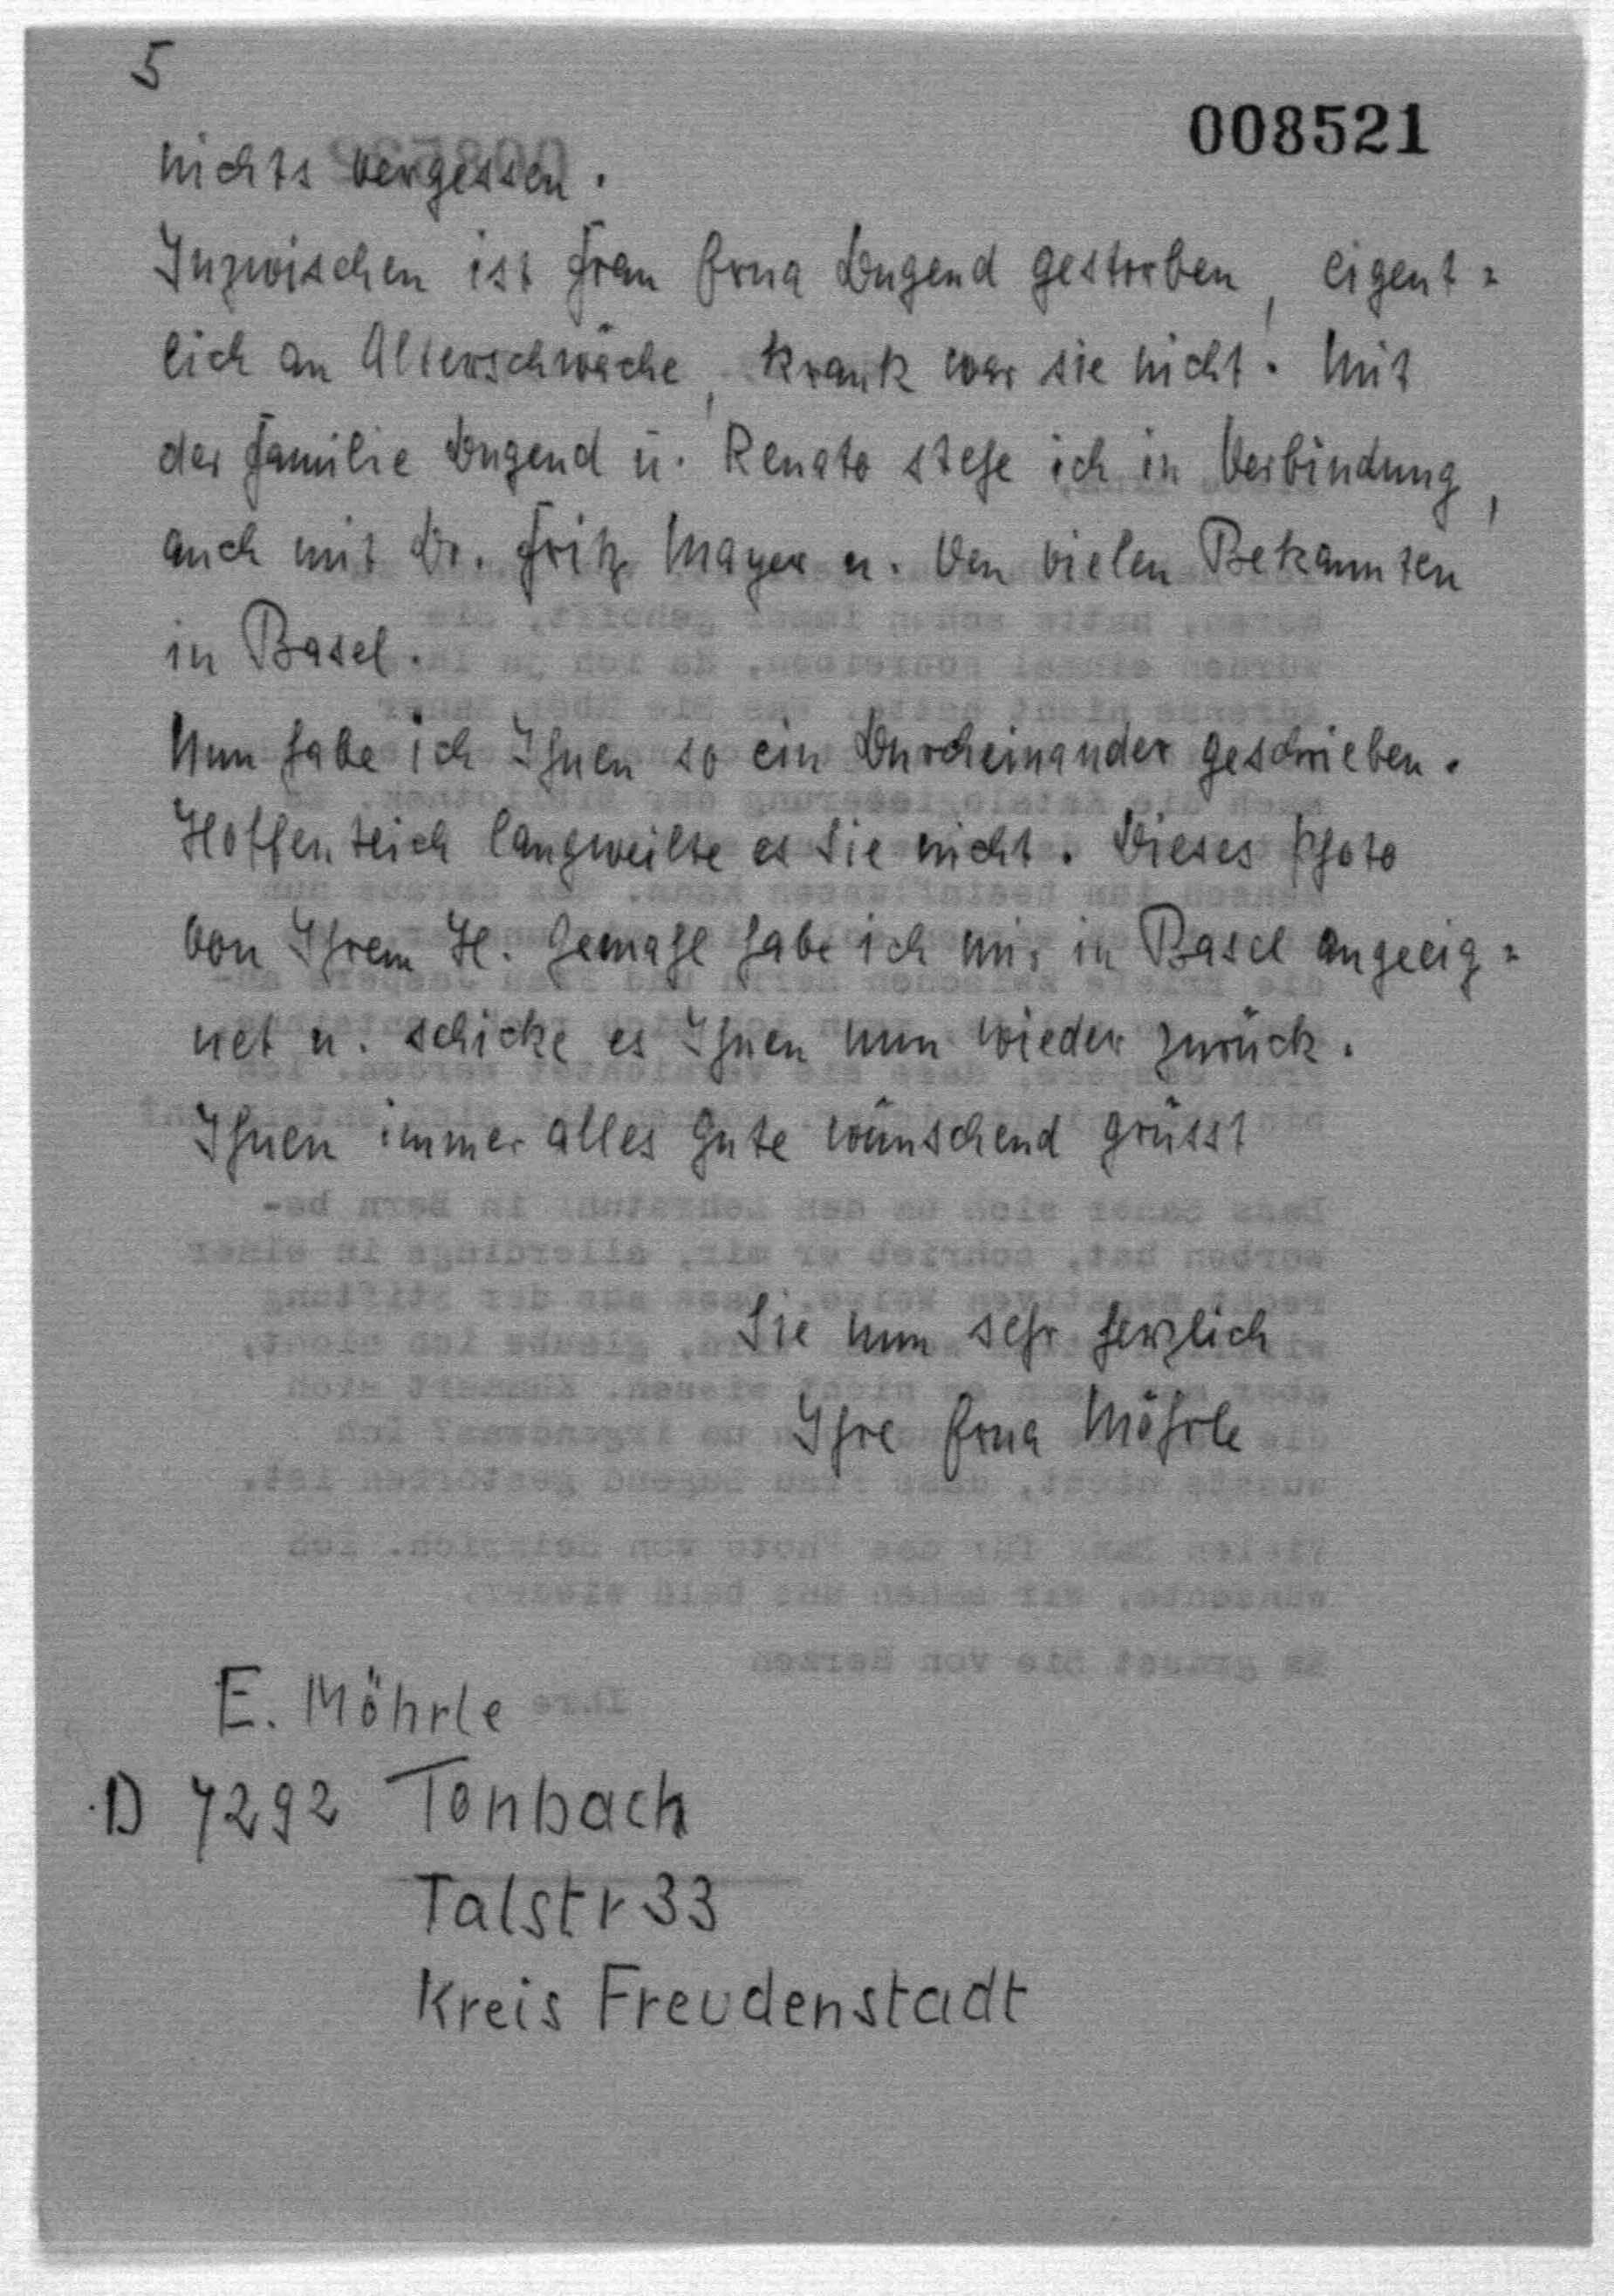 5
008521
nichts vergessen.
Inzwischen ist Frau Erna Dugend gestorben, eigent=
lich an Alterschwäche, krank war sie nicht. Mit
der Familie Dugend u. Renato stehe ich in Verbindung,
auch mit Dr. Fritz Mayer u. den vielen Bekannten
in Basel.
Nun habe ich Ihnen so ein Durcheinander geschrieben.
Hoffenteich langweilte es Sie nicht. Dieses Photo
von Ihrem H. Gemahl habe ich mir in Basel angeeig=
net u. schicke es Ihnen nun wieder zurück.
Ihnen immer alles Gute wünschend grüsst
Sie nun sehr herzlich
Ihre Erna Möhrle
E. Möhrle
D 7292 Tonbach
Talstr 33
Kreis Freudenstadt